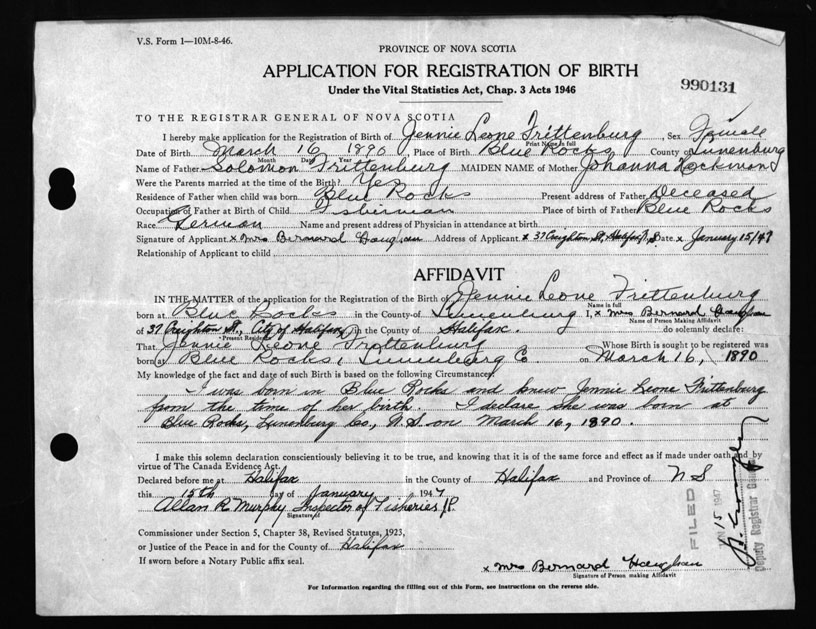 V.S. Form 1—10M-8-46.
PROVINCE OF NOVA SCOTIA
APPLICATION FOR REGISTRATION OF BIRTH
990131
Under the Vital Statistics Act, Chap. 3 Acts 1946
TO THE REGISTRAR GENERAL OF NOVA SCOTIA
I hereby make application for the Registration of Birth of Jennie Leone Trittenburg, Sex Female
Print Name in full
Date of Birth March 16 1890, Place of Birth Blue Rocks County of Lunenburg
Month Date Year
Name of Father Solomon Trittenburg MAIDEN NAME of Mother Johanna
Were the Parents married at the time of the Birth? Yes
Residence of Father when child was born Blue Rocks Present address of Father Deceased
Occupation of Father at Birth of Child Fisherman Place of birth of Father Blue Rocks
Race German Name and present address of Physician in attendance at birth
Signature of Applicant x Mrs Bernard Address of Applicant x 37 Creighton St, Halifax, Date x January 15/47
Relationship of Applicant to child
AFFIDAVIT
IN THE MATTER of the application for the Registration of the Birth of Jennie Leone Trittenburg
Name in full
born at Blue Rocks in the County of Lunenburg I, x Mrs Bernard
Name of Person Making Affidavit
of 37 Creighton St, City of Halifax, in the County of Halifax. do solemnly declare:
Present Residence
That Jennie Leone Trittenburg Whose Birth is sought to be registered was
born at Blue Rocks, Lunenburg Co. on March 16, 1890
My knowledge of the fact and date of such Birth is based on the following Circumstances
I was born in Blue Rocks and knew Jennie Leone Trittenburg
from the time of her birth. I declare she was born at
Blue Rocks, Lunenburg Co., N.S. on March 16, 1890.
I make this solemn declaration conscientiously believing it to be true, and knowing that it is of the same force and effect as if made under oath and by
virtue of The Canada Evidence Act.
Declared before me at Halifax in the County of Halifax and Province of N S
this 15th day of January 1947
Allan R. Murphy Inspector of Fisheries J.P.
Signature of
Commissioner under Section 5, Chapter 38, Revised Statutes, 1923,
or Justice of the Peace in and for the County of Halifax
If sworn before a Notary Public affix seal.
x Mrs Bernard
Signature of Person making Affidavit
For Information regarding the filling out of this Form, see instructions on the reverse side.
FILED
15 1947
Deputy Registrar